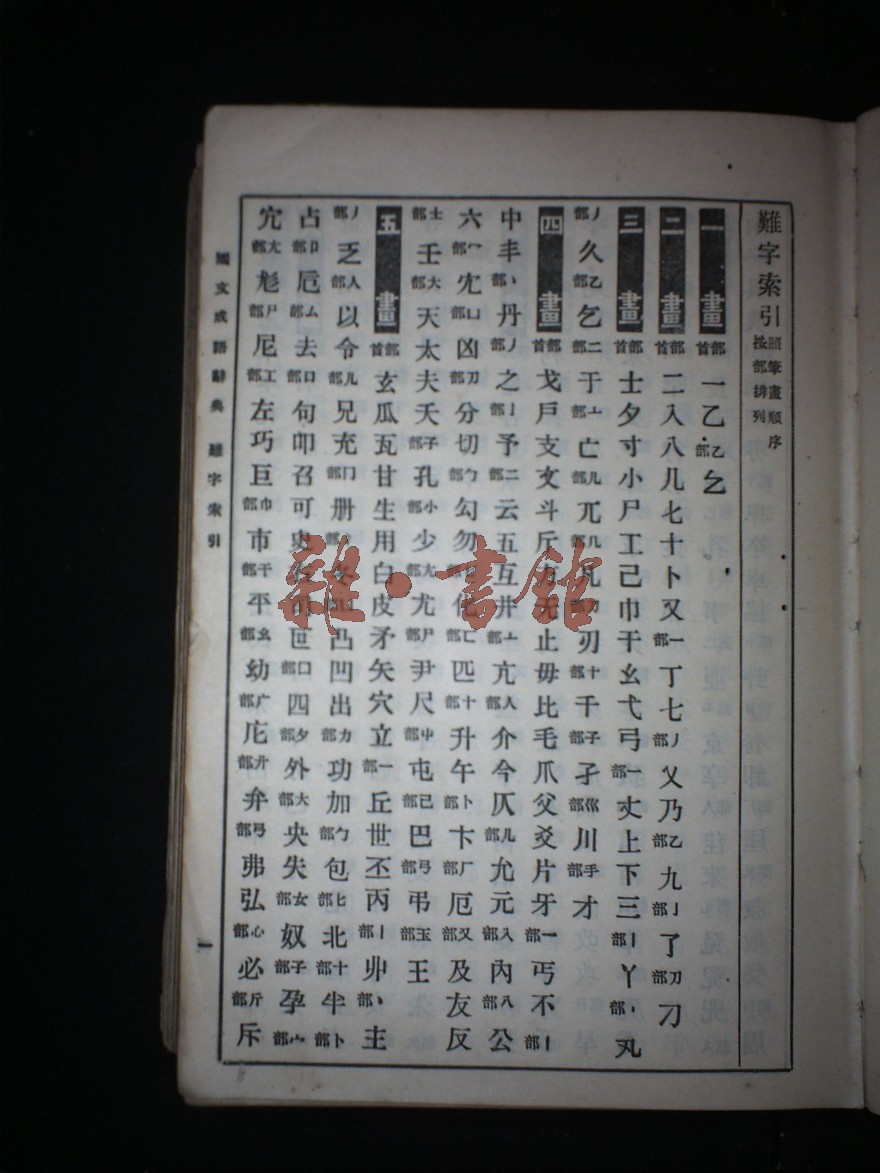 難字索引 照筆畫順序 按部排列
一畫 部首 一乙 乙部 乞
二畫 部首 二入八几匕十卜又 一部 丁七 丿部 乂乃 乙部 九 亅部 了 刀部 刁
三畫 部首 士夕寸小尸工己巾干幺弋弓 一部 丈上下三 丨部 丫 丶部 丸
丿部 久 乙部 乞 二部 于 亠部 亡 儿部 兀 几部 凡 刀部 刃 十部 千 子部 孑 巛部 川 手部 才
四畫 部首 戈戶支文斗斤方无止毋比毛爪父爻片牙 一部 丐不 丨部
中丰 丶部 丹 丿部 之 亅部 予 二部 云五互井 亠部 亢 人部 介今仄 儿部 允元 入部 內 八部 公
六 冖部 冘 凵部 凶 刀部 分切 勹部 勾勿 化 匚部 匹 十部 升午 卜部 卞 厂部 厄 又部 及友反
士部 壬 大部 天太夫夭 子部 孔 小部 少 尢部 尤 尸部 尹尺 屮部 屯 己部 巴 弓部 弔 玉部 王
五畫 部首 玄瓜瓦甘生用白皮矛矢穴立 一部 丘世丕丙 丨部 丱 丶部 主
丿部 乏 人部 以令 儿部 兄充 冂部 册 冬 凸凹出 力部 功加 勹部 包 匕部 北 十部 半 卜部
占 卩部 厄 厶部 去 口部 句叩召可史右 叵 口部 四 夕部 外 大部 央失 女部 奴 子部 孕 宀部
宄 尢部 尨 尸部 尼 工部 左巧巨 巾部 市 干部 平 幺部 幼 广部 庀 廾部 弁 弓部 弗弘 心部 必 斤部 斥
國文成語辭典 難字索引
一
雜·書館